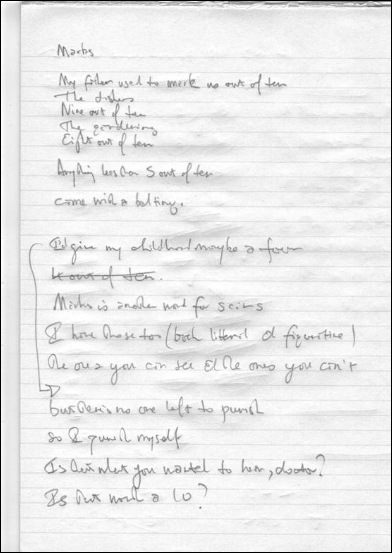 Marks
My father used to mark us out of ten
The dishes
Nine out of ten
The gardening
Eight out of ten
Anything less than 5 out of ten
came with a belting.
I'd give my childhood maybe a four
4 out of ten.
Marks is another word for scars
I have those too (both literal & figurative)
The ones you can see & the ones you can't
but there's no one left to punish
so I punish myself
Is that what you wanted to hear, doctor?
Is that worth a 10?